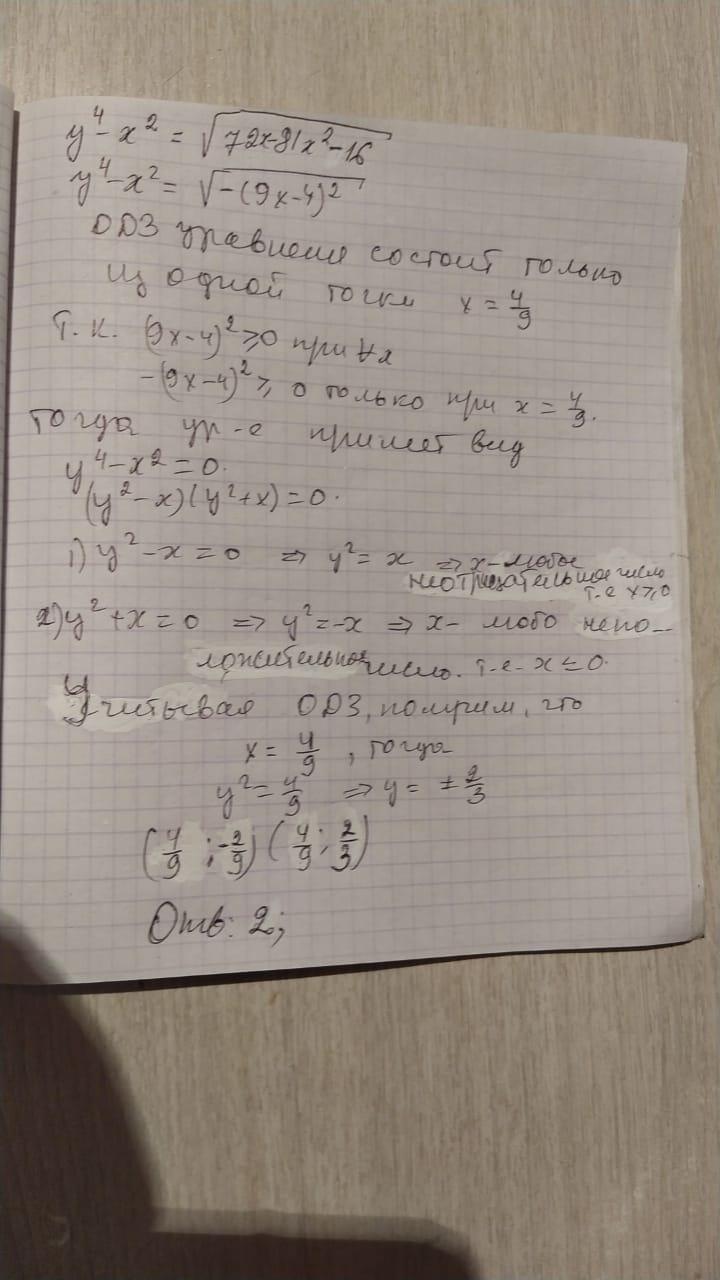 y⁴-x² = √72x-81x²-16
y⁴-x² = √-(9x-4)²
ОДЗ уравнения состоит только
из одной точки x = 4/9
Т.к. (9x-4)² ⩾ 0 при ∀x
-(9x-4)² ⩾ 0 только при x = 4/9.
Тогда ур-е примет вид
y⁴-x² = 0.
(y²-x)(y²+x) = 0.
1) y²-x = 0 ⇒ y² = x ⇒ x - любое
неотрицательное число
т.е x ⩾ 0
2) y²+x = 0 ⇒ y² = -x ⇒ x - любо непо-
ложительное число. т.е. x ≤ 0.
Учитывая ОДЗ, получим, что
x = 4/9, тогда
y² = 4/9 ⇒ y = ± 2/3
(4/9 ; -2/9) (4/9 ; 2/3)
Отв: 2;